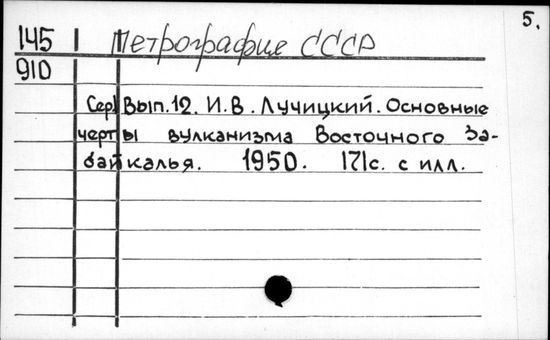 5.
145 Петрография СССР
910
Сер. Вып.12. И.В. Лучицкий. Основные
черты вулканизма Восточного За-
байкалья. 1950. 171с. с илл.